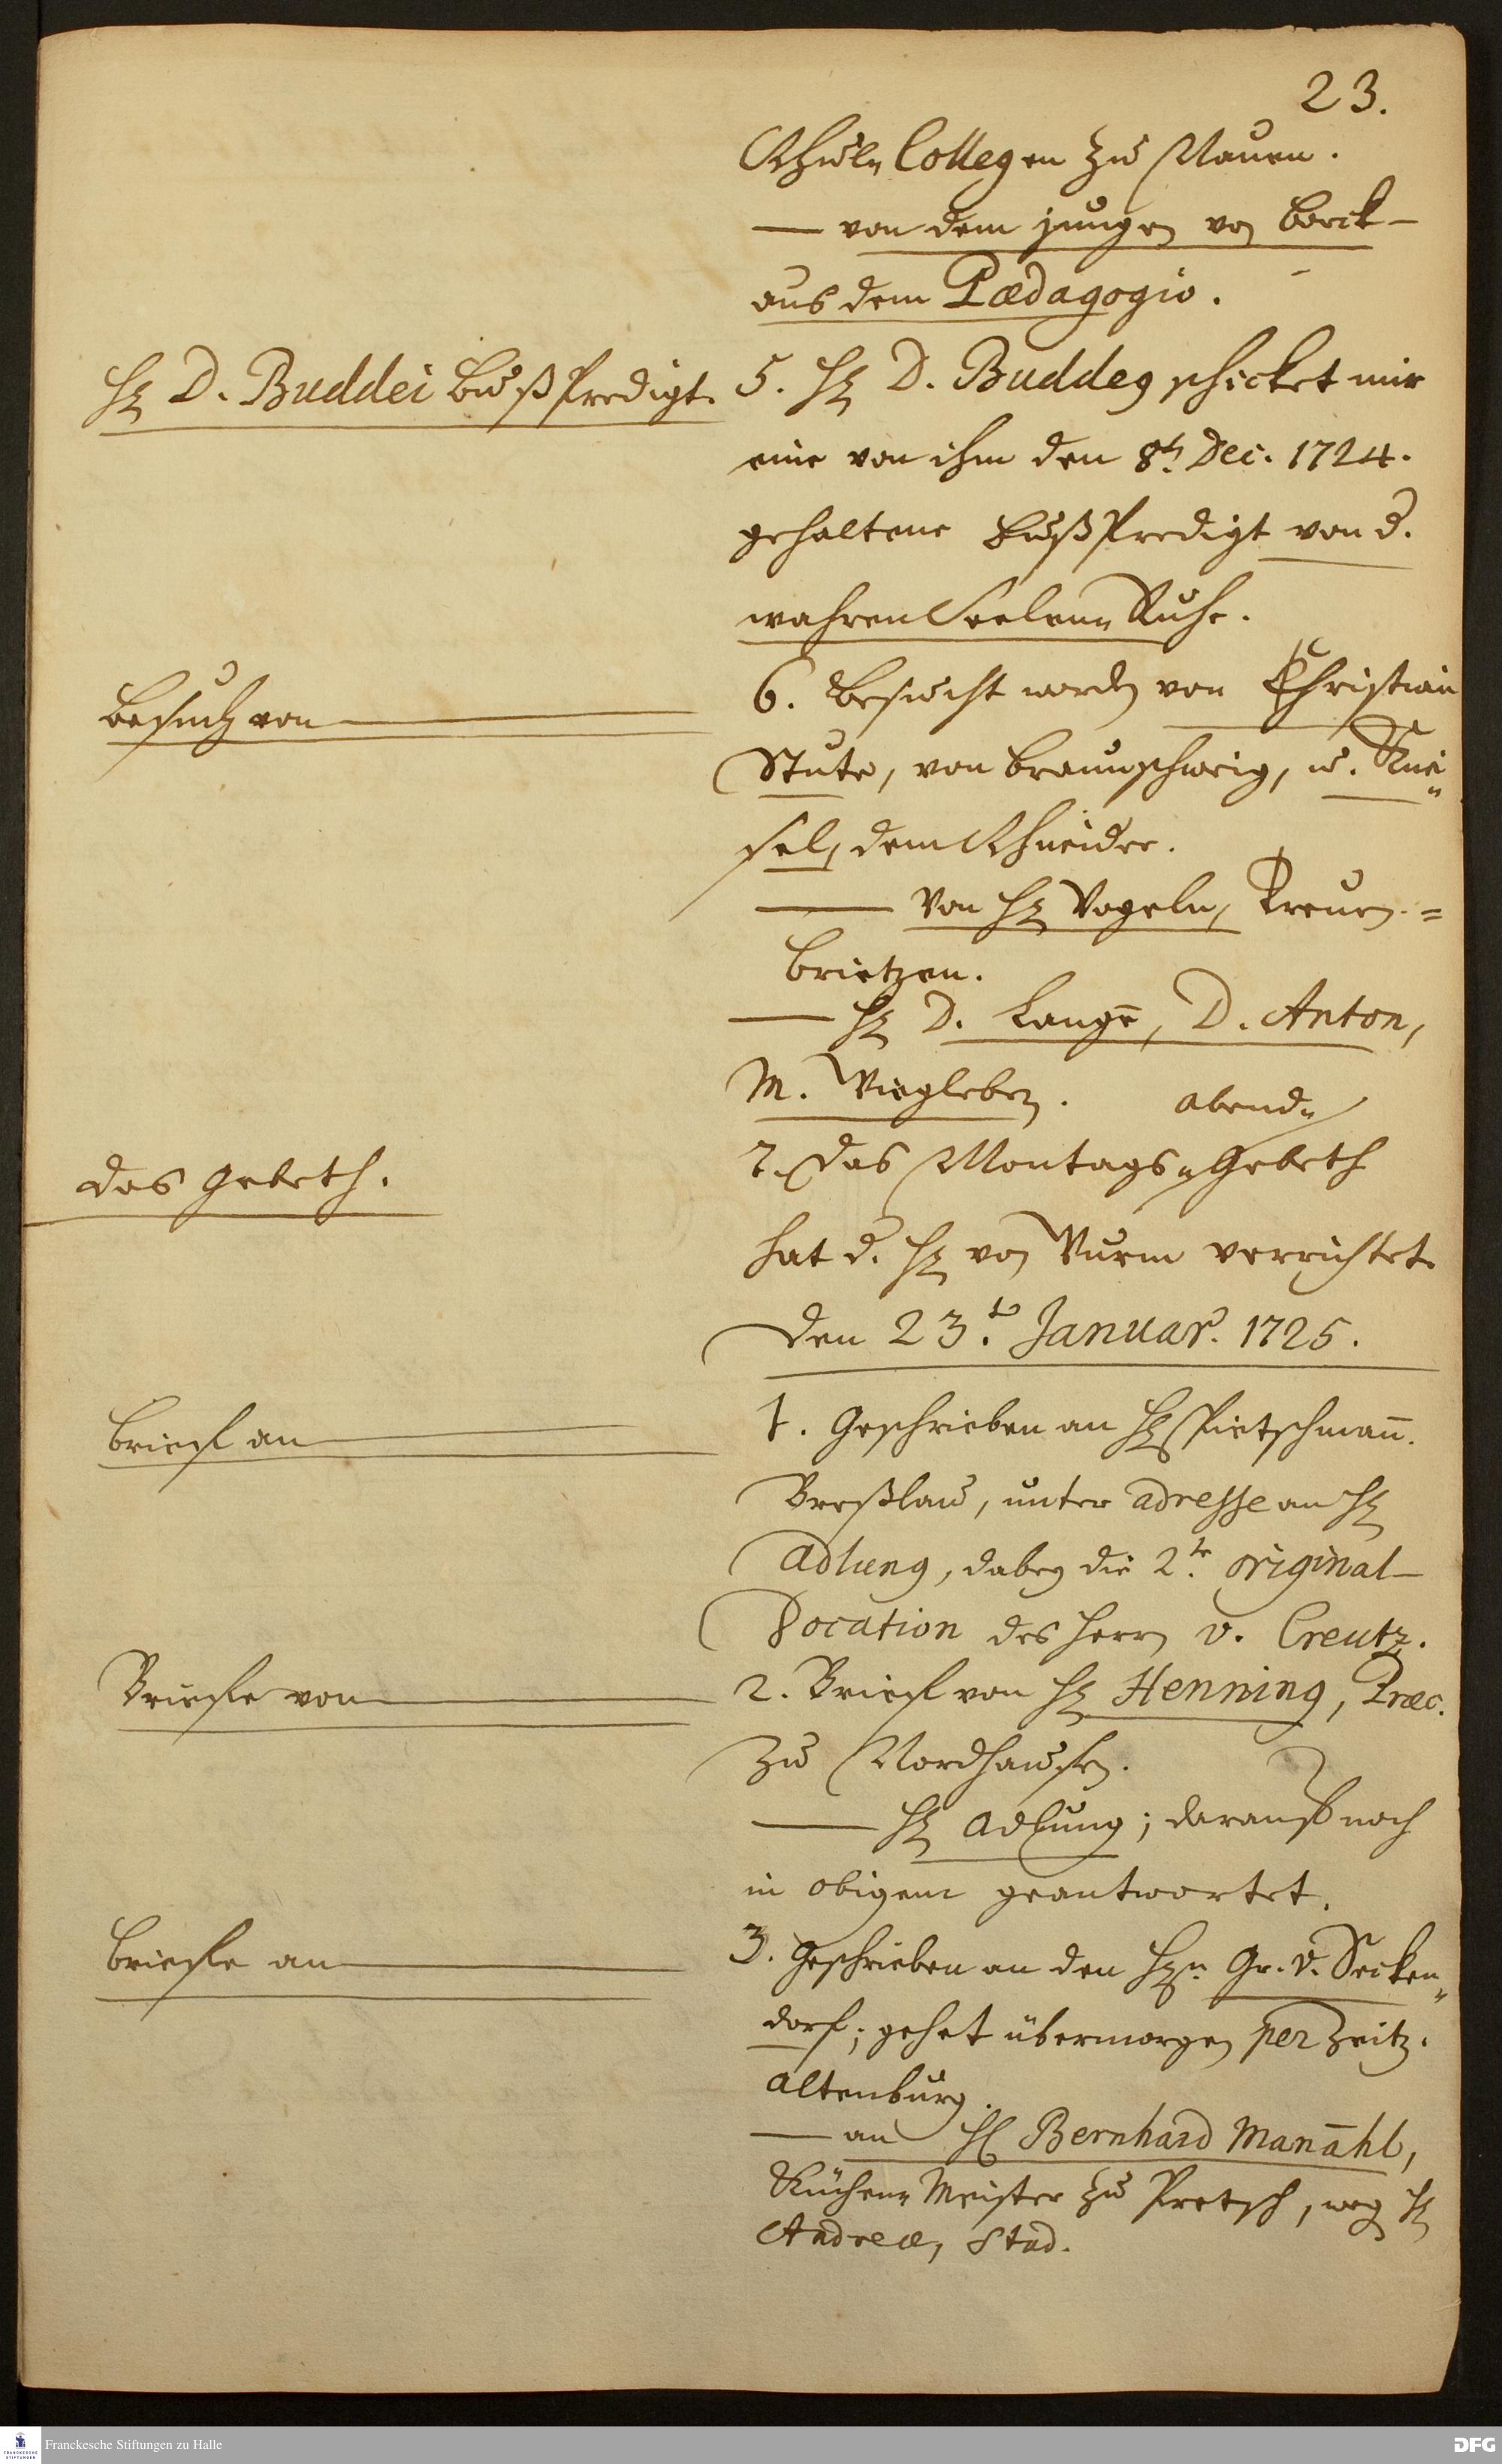 23.
Schul-Collegen zu Nauen.
— von dem jungen von Borck
aus dem Pædagogio.
H. D. Buddei BußPredigt.
5. H. D. Buddeg schicket mir
eine von ihm den 8t. Dec. 1724.
gehaltene BußPredigt von d.
wahren Seelen-Ruhe.
Besuch von
6. Besucht worden von Christian
Stute, von Braunschweig, u. Knei-
sel, dem Schneider.
— Von H. Vogeln, Treuen-
brietzen.
— H. D. Lange, D. Anton,
M. Wiegleben.
das Gebeth.
7. Das Montags-abend-Gebeth
hat d. H. von Wurm verrichtet.
Den 23.t Januar. 1725.
Brief an
1. Geschrieben an H. Pietschmann.
Breßlau, unter adresse an H.
Adlung, dabey die 2.te original-
Vocation des Herrn v. Creutz.
Briefe von
2. Brief von H. Henning, Præc.
zu Nordhausen.
— H. Adlung; darauf noch
in obigem geantwortet.
Briefe an
3. Geschrieben an den H.n Gr. v. Secken-
dorf; gehet übermorgen per Zeitz.
Altenburg.
— an H. Bernhard Manahl,
Küchen-Meister zu Pretsch, weg. H.
Andreæ, Stud.
Franckesche Stiftungen zu Halle
FRANCKESCHE STIFTUNGEN
DFG